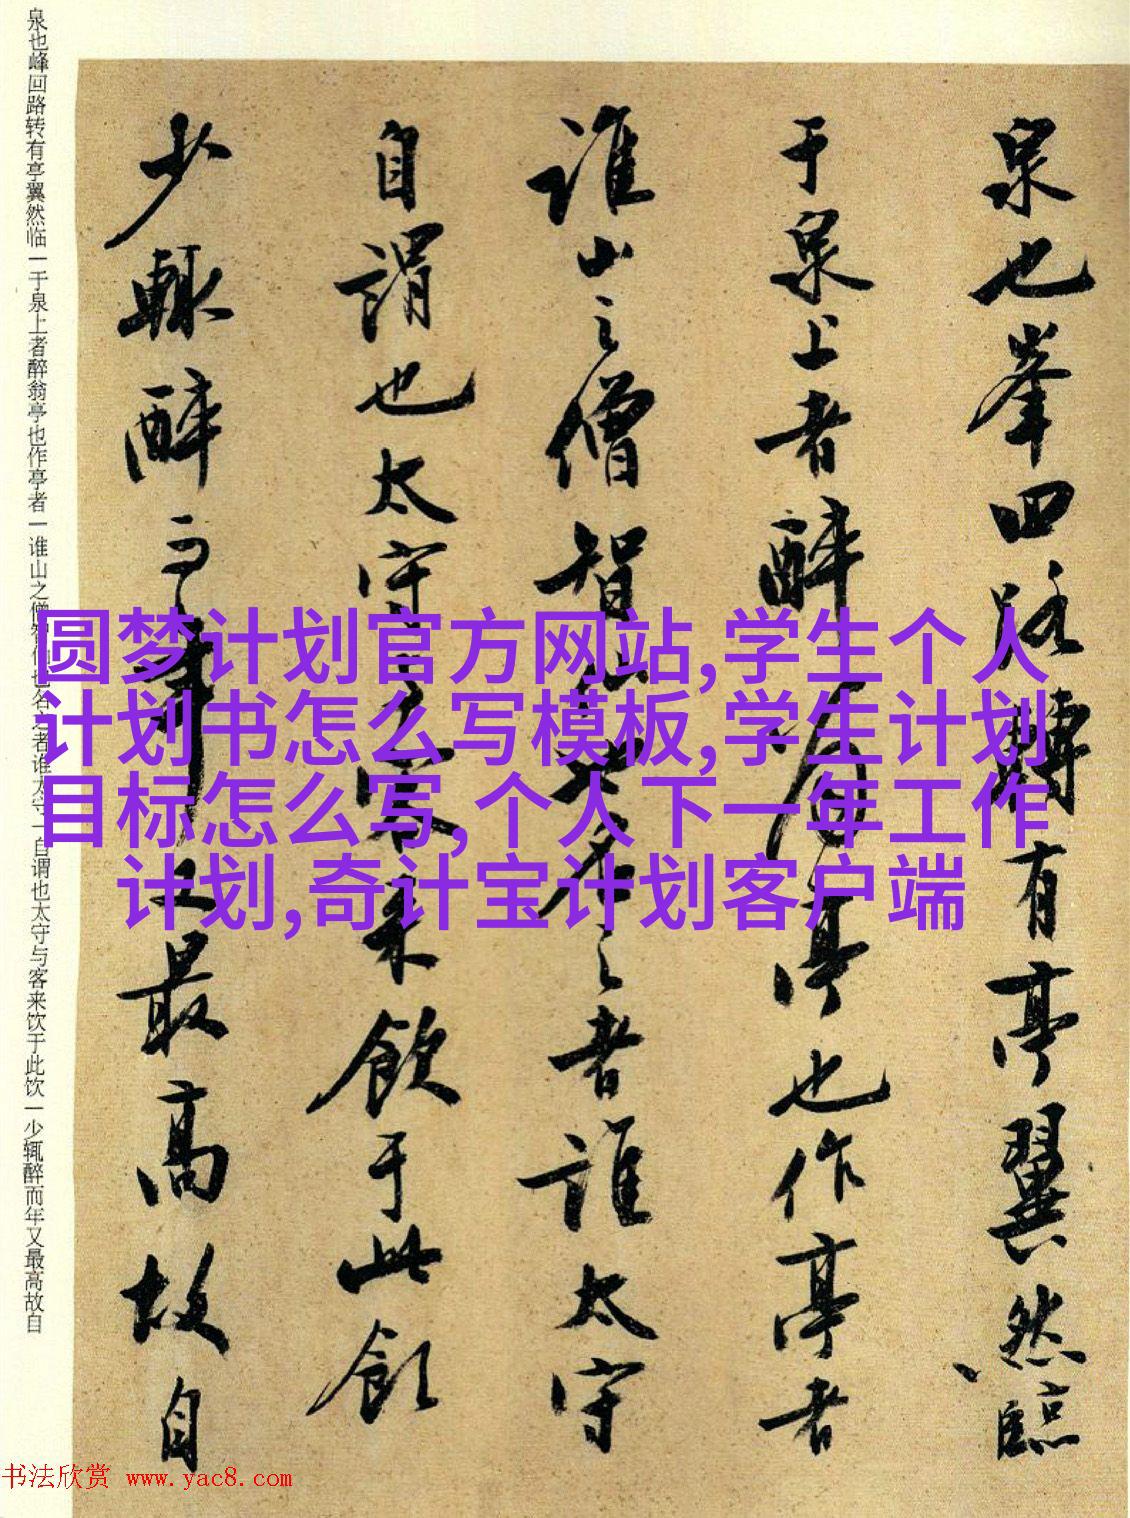 泉也峰回路转有亭翼然临一于泉上者醉翁亭也作亭者一谁山之僧智仙也名之者谁太守一自谓也太守与客来饮于此饮一少辄醉而年又最高故自
泉也峯回路轉有亭翼然臨
于泉上者醉翁亭也作亭者
誰山之僧智仙也名之者誰太守
自謂也太守与客来飲于此飲
少輒醉而年又最高故自
圆梦计划官方网站,学生个人
计划书怎么写模板,学生计划
目标怎么写,个人下一年工作
计划,奇计宝计划客户端
书法欣赏 www.yac8.com